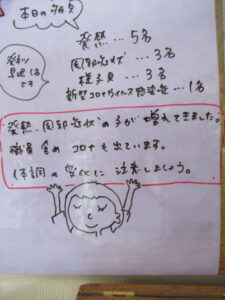 本日の欠席
発熱…5名
胃腸症状…3名
様子見…3名
新型コロナウイルス感染症…1名
発熱
早退1名
です
発熱、胃腸症状の子が増えてきました。
職員含め コロナも出ています。
体調の変化に注意しましょう。